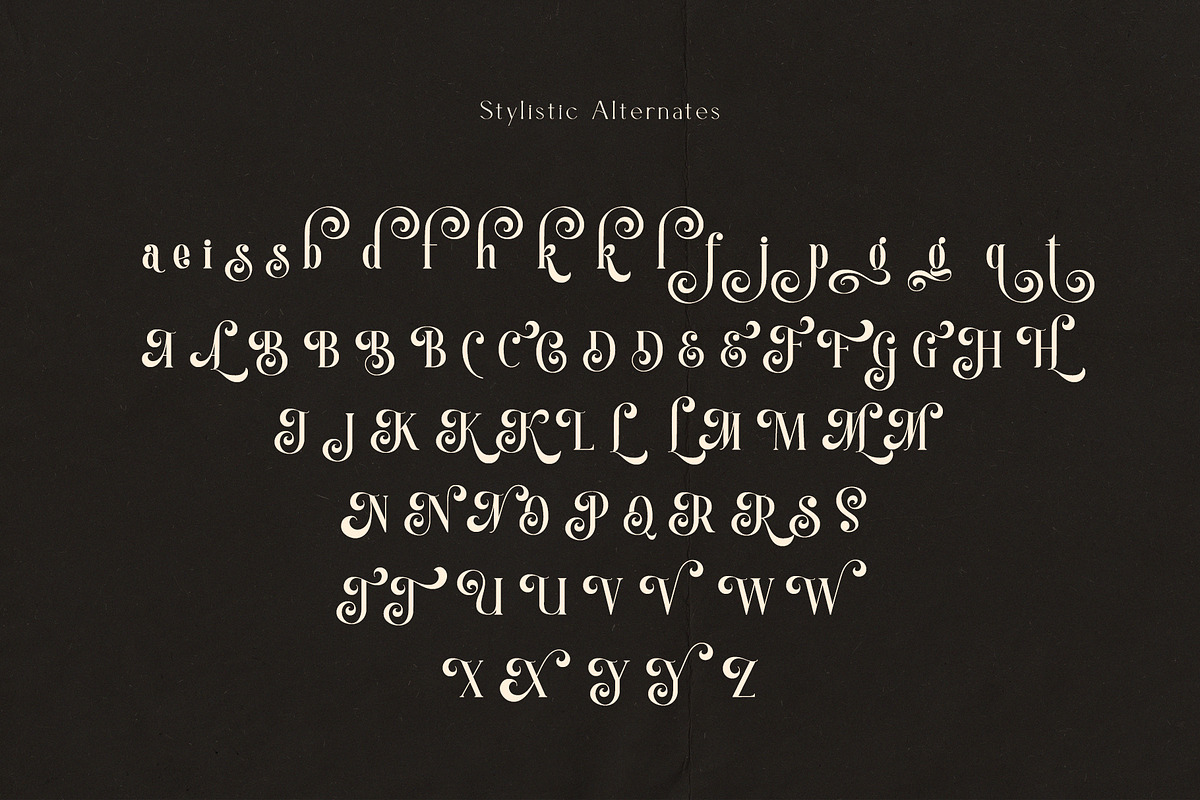 Stylistic Alternates
a e i s s b d f h k k l f j p g g q t
A A B B B B C C C D D E E F F G G H H
J J K K K L L L M M M M
N N N O P Q R R S S
T T U U V V W W
X X Y Y Z